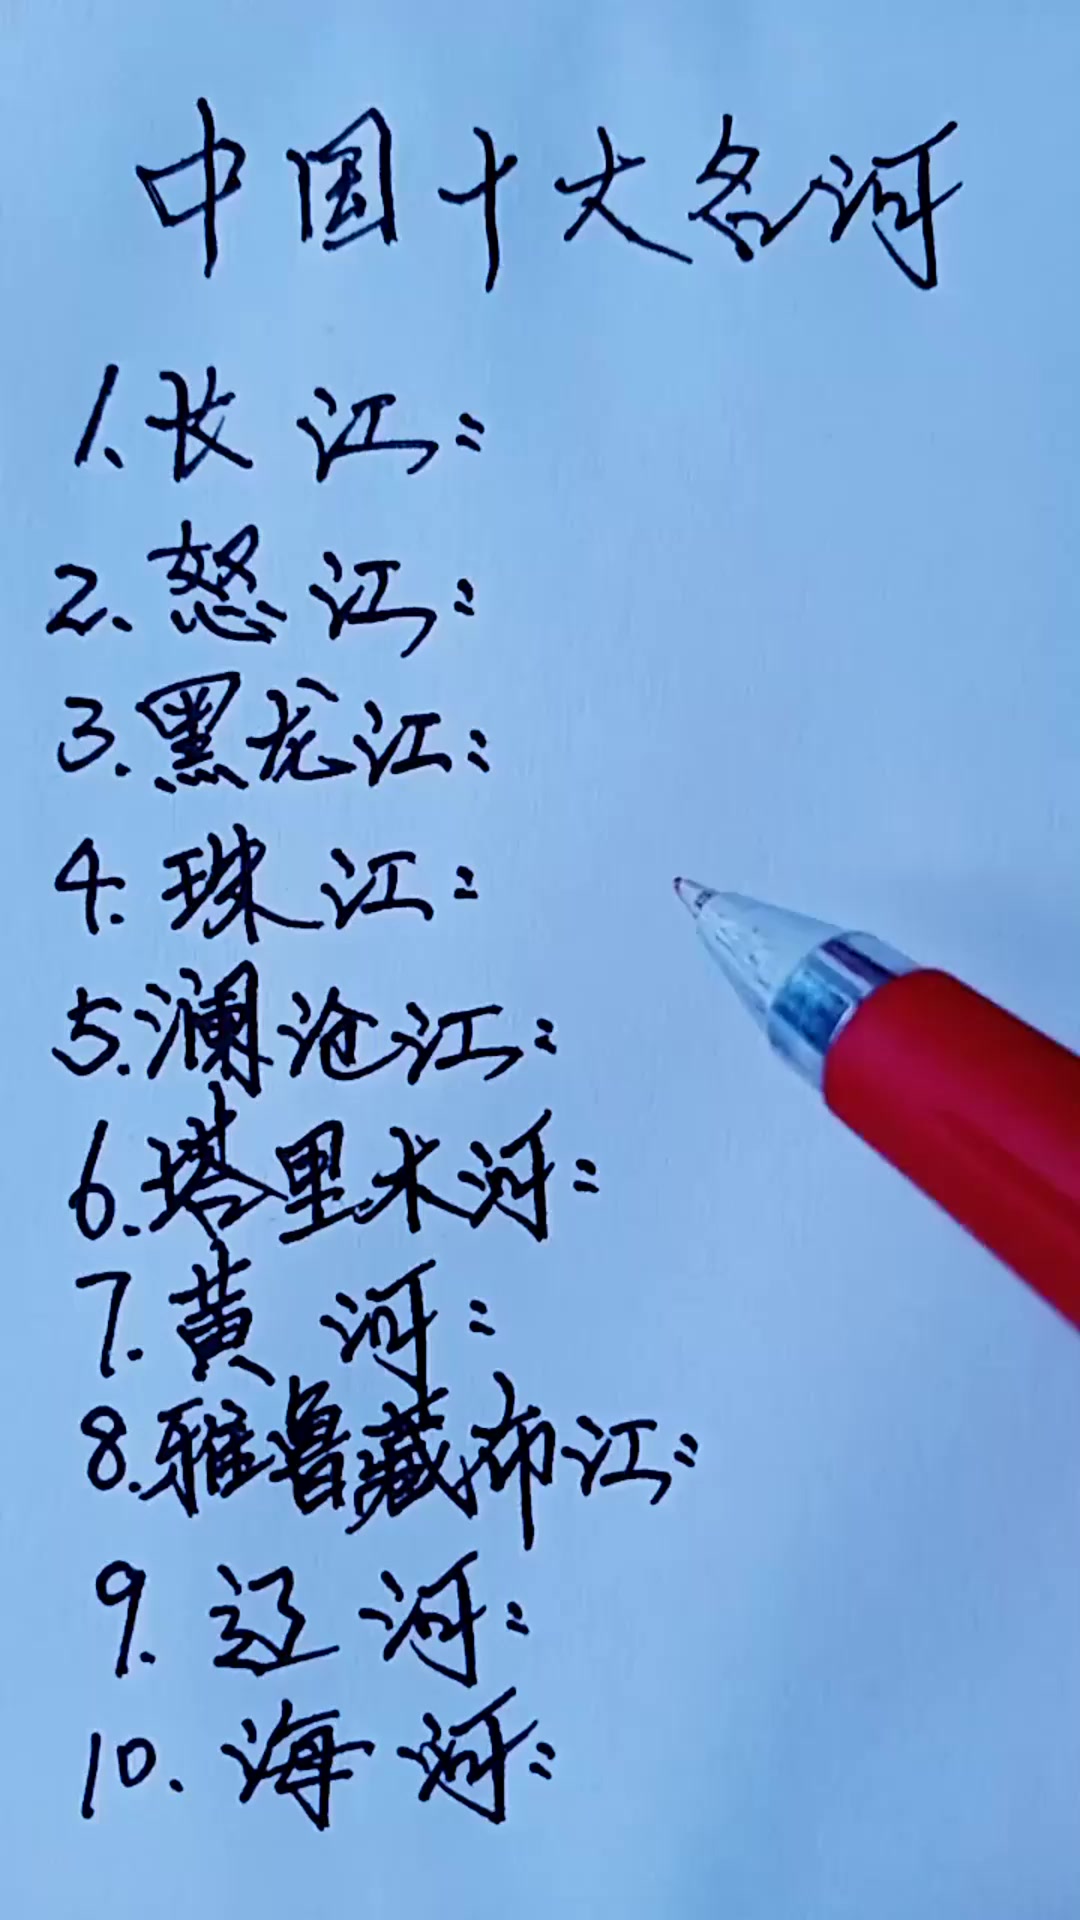 中国十大名河
1.长江：
2.怒江：
3.黑龙江：
4.珠江：
5.澜沧江：
6.塔里木河：
7.黄河：
8.雅鲁藏布江：
9.辽河：
10.海河：